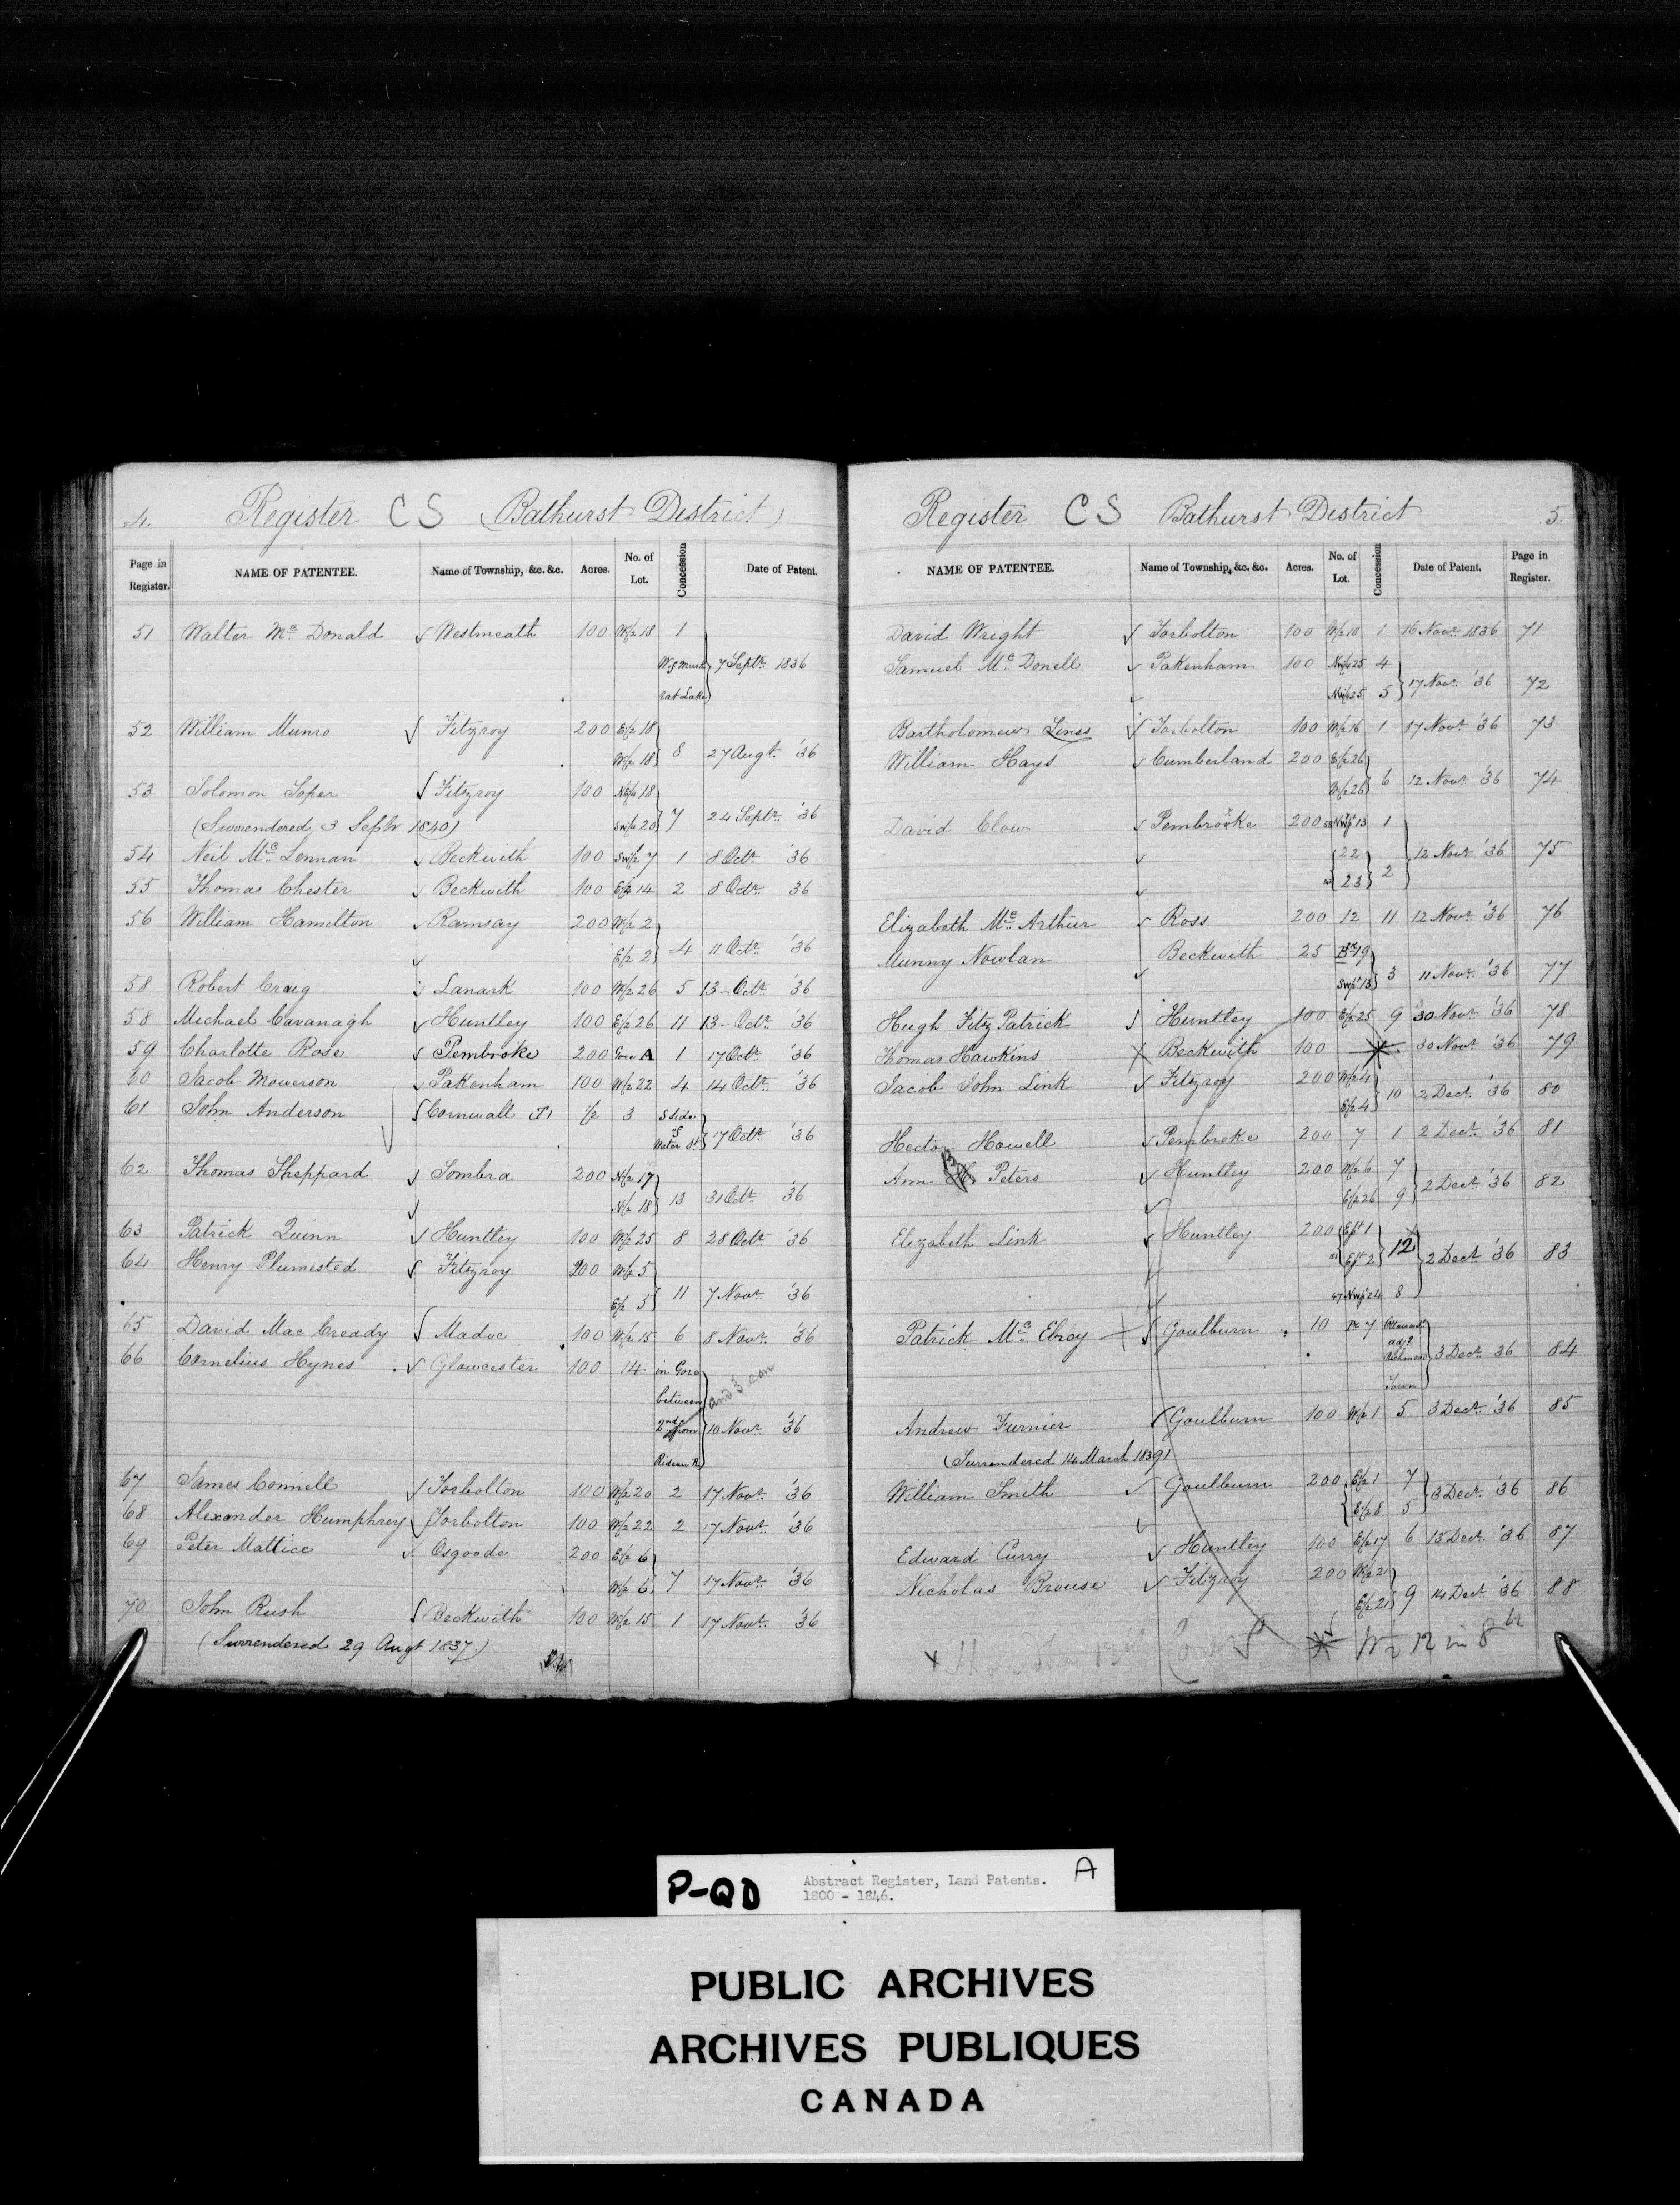 4. Register CS (Bathurst District)
Page in Register. NAME OF PATENTEE. Name of Township, &c. &c. Acres. No. of Lot. Concession Date of Patent.
51 Walter Mc Donald Westmeath 100 W/2 18 1
W. S Musk 7 Septr. 1836
rat Lake
52 William Munro Fitzroy 200 E/2 18
W/2 18 8 27 Augt. '36
53 Solomon Soper Fitzroy 100 NE/4 18
(Surrendered 3 Septr 1840) SW/4 20 7 24 Septr. '36
54 Neil Mc Lennan Beckwith 100 SW/2 7 1 8 Octr. '36
55 Thomas Chester Beckwith 100 E/2 14 2 8 Octr. 36
56 William Hamilton Ramsay 200 W/2 2
E/2 2 4 11 Octr. '36
58 Robert Craig Lanark 100 W/2 26 5 13 - Octr. '36
58 Michael Cavanagh Huntley 100 E/2 26 11 13 - Octr. '36
59 Charlotte Rose Pembroke 200 Gore A 1 17 Octr. '36
60 Jacob Mowerson Pakenham 100 W/2 22 4 14 Octr. '36
61 John Anderson Cornwall (T) 1/2 3 S side
of
Water St. 17 Octr. '36
62 Thomas Sheppard Sombra 200 N/2 17
N/2 18 13 31 Octr. '36
63 Patrick Quinn Huntley 100 W/2 25 8 28 Octr. '36
64 Henry Plumested Fitzroy 200 W/2 5
E/2 5 11 7 Novr. '36
65 David Mac Cready Madoc 100 W/2 15 6 8 Novr. '36
66 Cornelius Hynes Gloucester 100 14 in Gore
between and 3 con
2nd from 10 Novr. '36
Rideau R.
67 James Connell Torbolton 100 W/2 20 2 17 Novr. '36
68 Alexander Humphrey Torbolton 100 W/2 22 2 17 Novr. '36
69 Peter Mattice Osgoode 200 E/2 6
W/2 6 7 17 Novr. '36
70 John Rush Beckwith 100 W/2 15 1 17 Novr. '36
(Surrendered 29 Augt 1837.)
Register CS Bathurst District 5.
NAME OF PATENTEE. Name of Township, &c. &c. Acres. No. of Lot. Concession Date of Patent. Page in Register.
David Wright Torbolton 100 W/2 10 1 16 Novr. 1836 71
Samuel Mc Donell Pakenham 100 NW/4 25 4
NW/4 25 5 17 Novr. '36 72
Bartholomew Linss Torbolton 100 W/2 16 1 17 Novr. '36 73
William Hays Cumberland 200 E/2 26
W/2 26 6 12 Novr. '36 74
David Clow Pembroke 200 13 1
22 12 Novr. '36 75
23 2
Elizabeth Mc Arthur Ross 200 12 11 12 Novr. '36 76
Munny Nowlan Beckwith 25 19
13 3 11 Novr. '36 77
Hugh Fitz Patrick Huntley 100 E/2 25 9 30 Novr. '36 78
Thomas Hawkins X Beckwith 100 30 Novr. '36 79
Jacob John Link Fitzroy 200 W/2 4
E/2 4 10 2 Decr. '36 80
Hector Howell Pembroke 200 7 1 2 Decr. '36 81
Ann B Peters Huntley 200 W/2 6 7
E/2 26 9 2 Decr. '36 82
Elizabeth Link Huntley 200 Ept 1
Ept 2 12 2 Decr. '36 83
24 8
Patrick Mc Elroy Goulburn 10 Pt 7
adjg.
Richmond 3 Decr. 36 84
Town
Andrew Furnier Goulburn 100 W/2 1 5 3 Decr. '36 85
(Surrendered 14 March 1839)
William Smith Goulburn 200 E/2 1 7
E/2 8 5 3 Decr. '36 86
Edward Curry Huntley 100 E/2 17 6 13 Decr. '36 87
Nicholas Brouse Fitzroy 200 W/2 21
E/2 21 9 14 Decr. '36 88
W 1/2 12 in 8th
P-QD Abstract Register, Land Patents. A
1800 - 1846.
PUBLIC ARCHIVES
ARCHIVES PUBLIQUES
CANADA